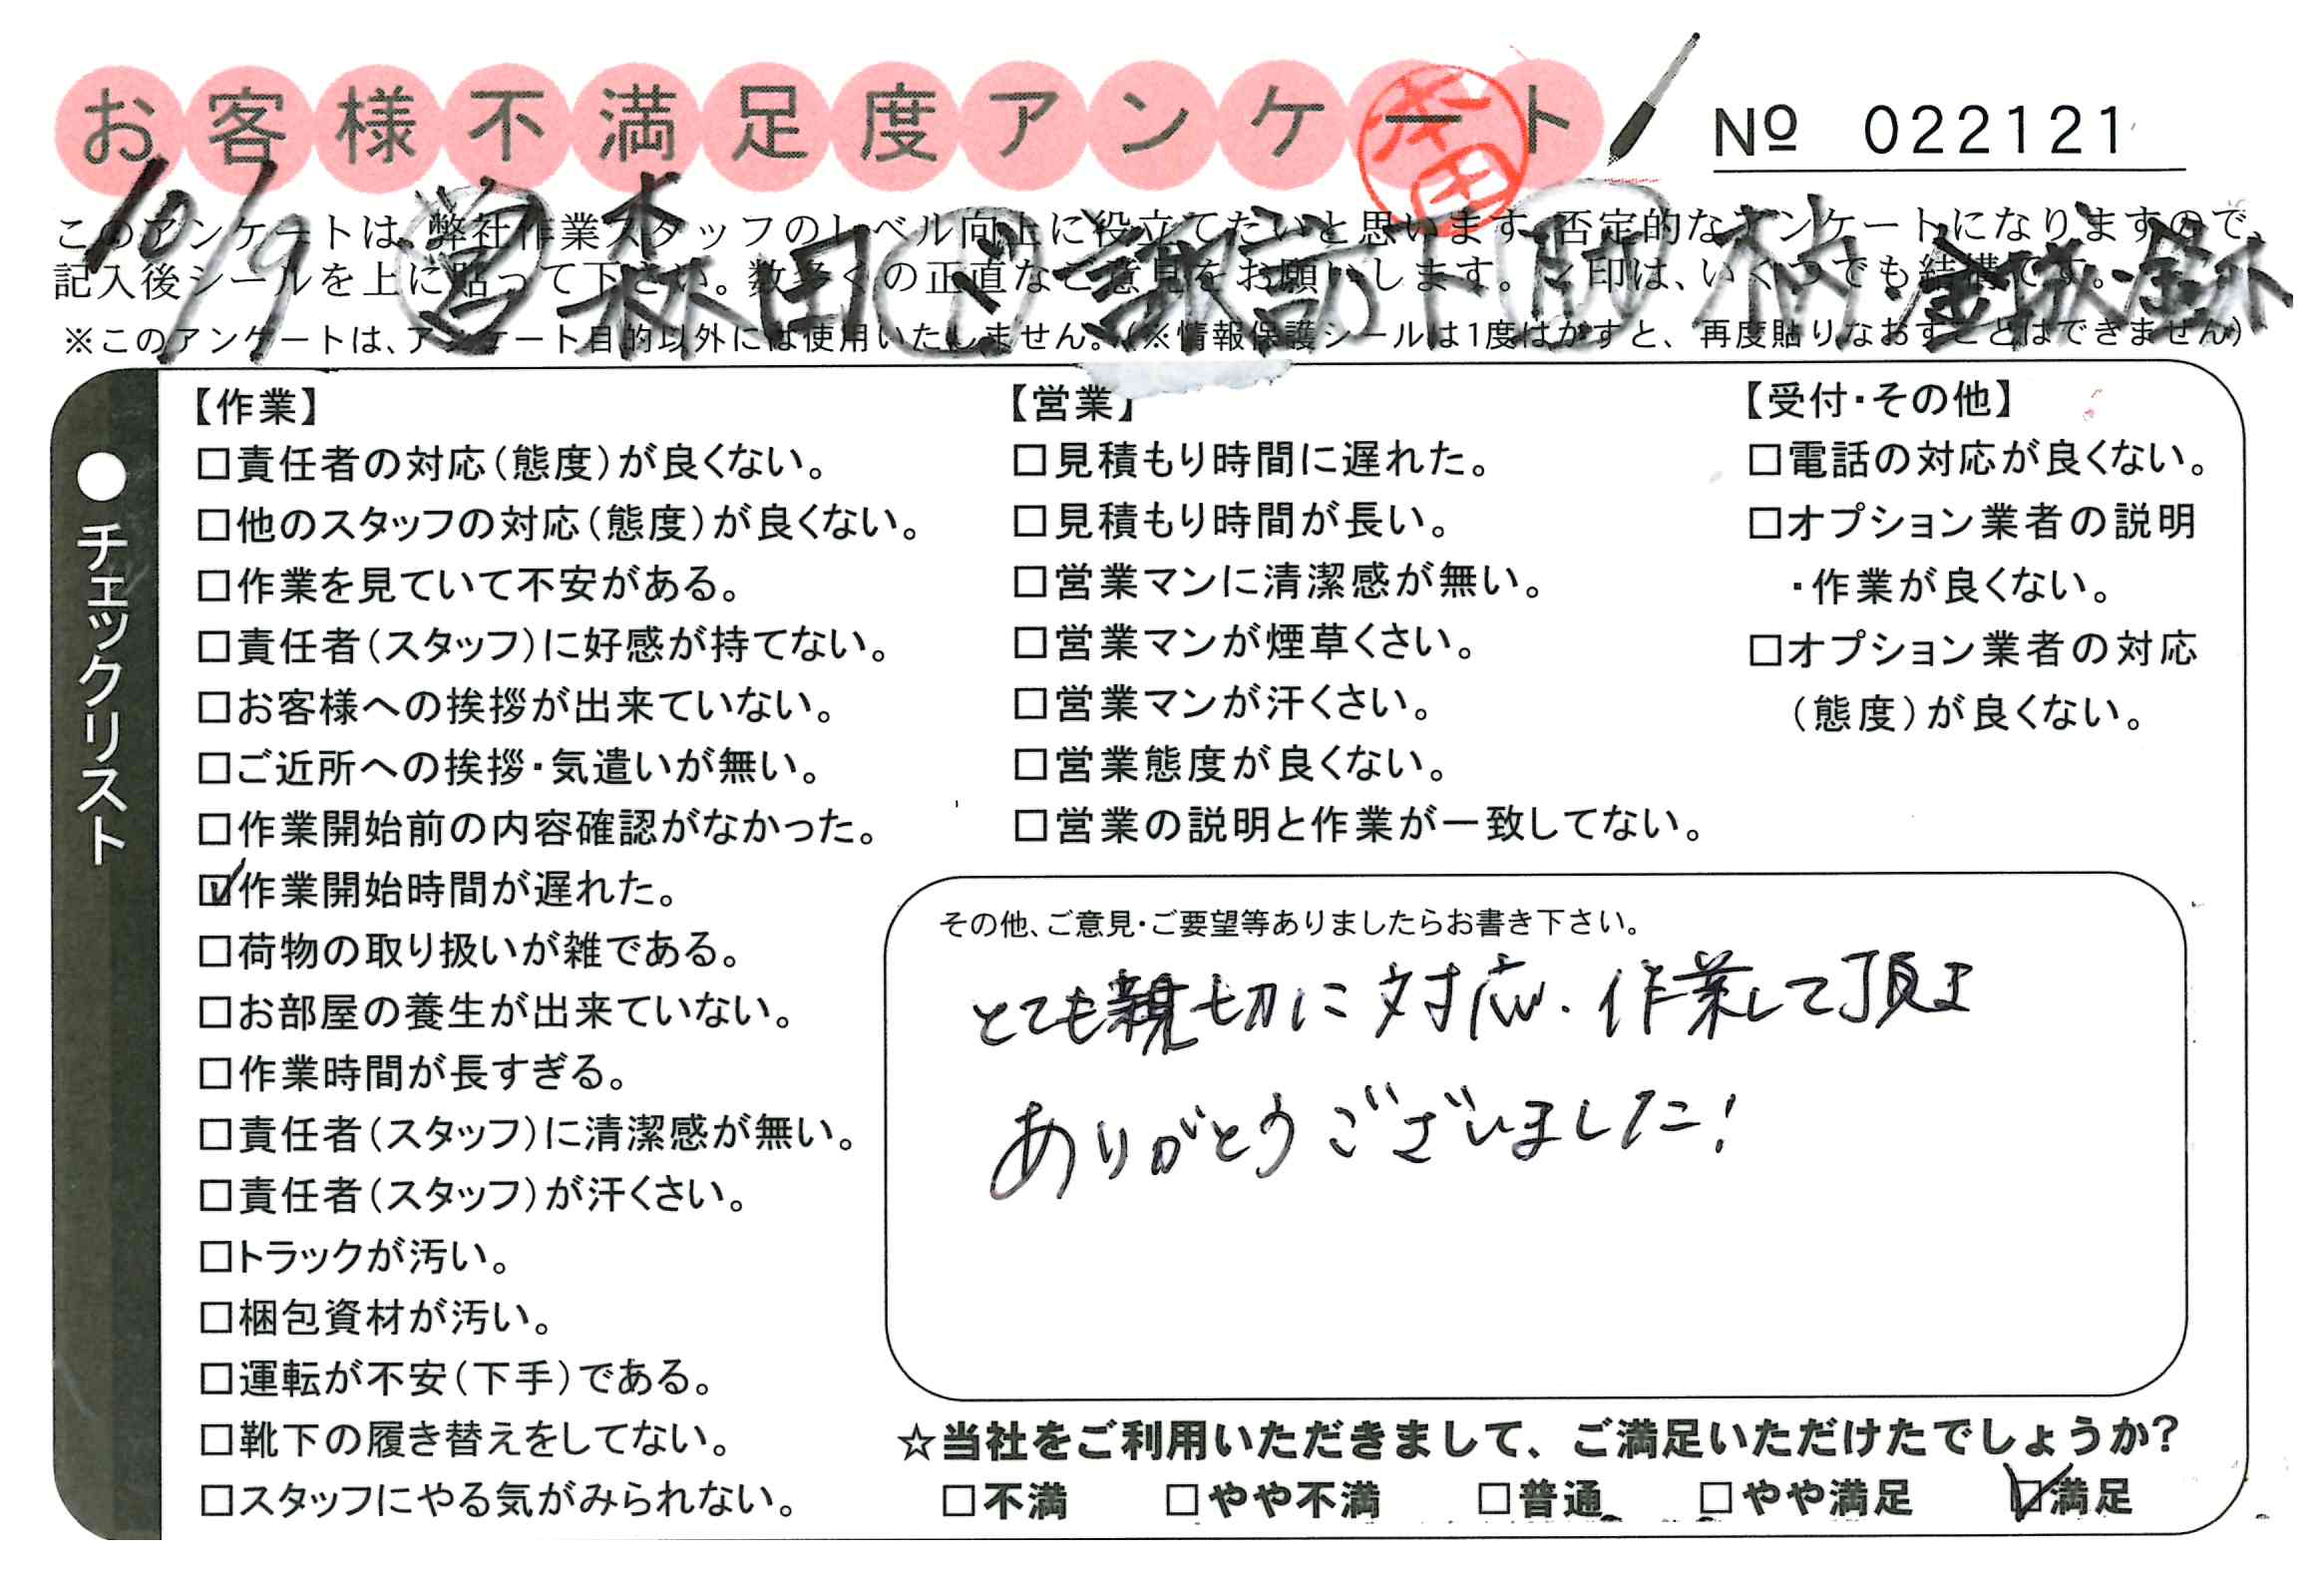 お客様不満足度アンケート
本田
№ 022121
10/9 営 森田 諏訪
このアンケートは、弊社作業スタッフのレベル向上に役立てたいと思います。否定的なアンケートになりますので、
記入後シールを上に貼って下さい。数多くの正直なご意見をお願いします。✓印は、いくつでも結構です。
※このアンケートは、アンケート目的以外には使用いたしません。(※情報保護シールは1度はがすと、再度貼りなおすことはできません)
●チェックリスト
【作業】
□責任者の対応(態度)が良くない。
□他のスタッフの対応(態度)が良くない。
□作業を見ていて不安がある。
□責任者(スタッフ)に好感が持てない。
□お客様への挨拶が出来ていない。
□ご近所への挨拶・気遣いが無い。
□作業開始前の内容確認がなかった。
☑作業開始時間が遅れた。
□荷物の取り扱いが雑である。
□お部屋の養生が出来ていない。
□作業時間が長すぎる。
□責任者(スタッフ)に清潔感が無い。
□責任者(スタッフ)が汗くさい。
□トラックが汚い。
□梱包資材が汚い。
□運転が不安(下手)である。
□靴下の履き替えをしてない。
□スタッフにやる気がみられない。
【営業】
□見積もり時間に遅れた。
□見積もり時間が長い。
□営業マンに清潔感が無い。
□営業マンが煙草くさい。
□営業マンが汗くさい。
□営業態度が良くない。
□営業の説明と作業が一致してない。
【受付・その他】
□電話の対応が良くない。
□オプション業者の説明
・作業が良くない。
□オプション業者の対応
(態度)が良くない。
その他、ご意見・ご要望等ありましたらお書き下さい。
とても親切に対応・作業して頂き
ありがとうございました!
☆当社をご利用いただきまして、ご満足いただけたでしょうか?
□不満 □やや不満 □普通 □やや満足 ☑満足